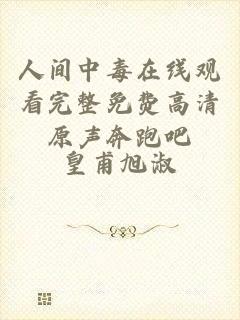 人间中毒在线观
看完整免费高清
原声奔跑吧
皇甫旭淑